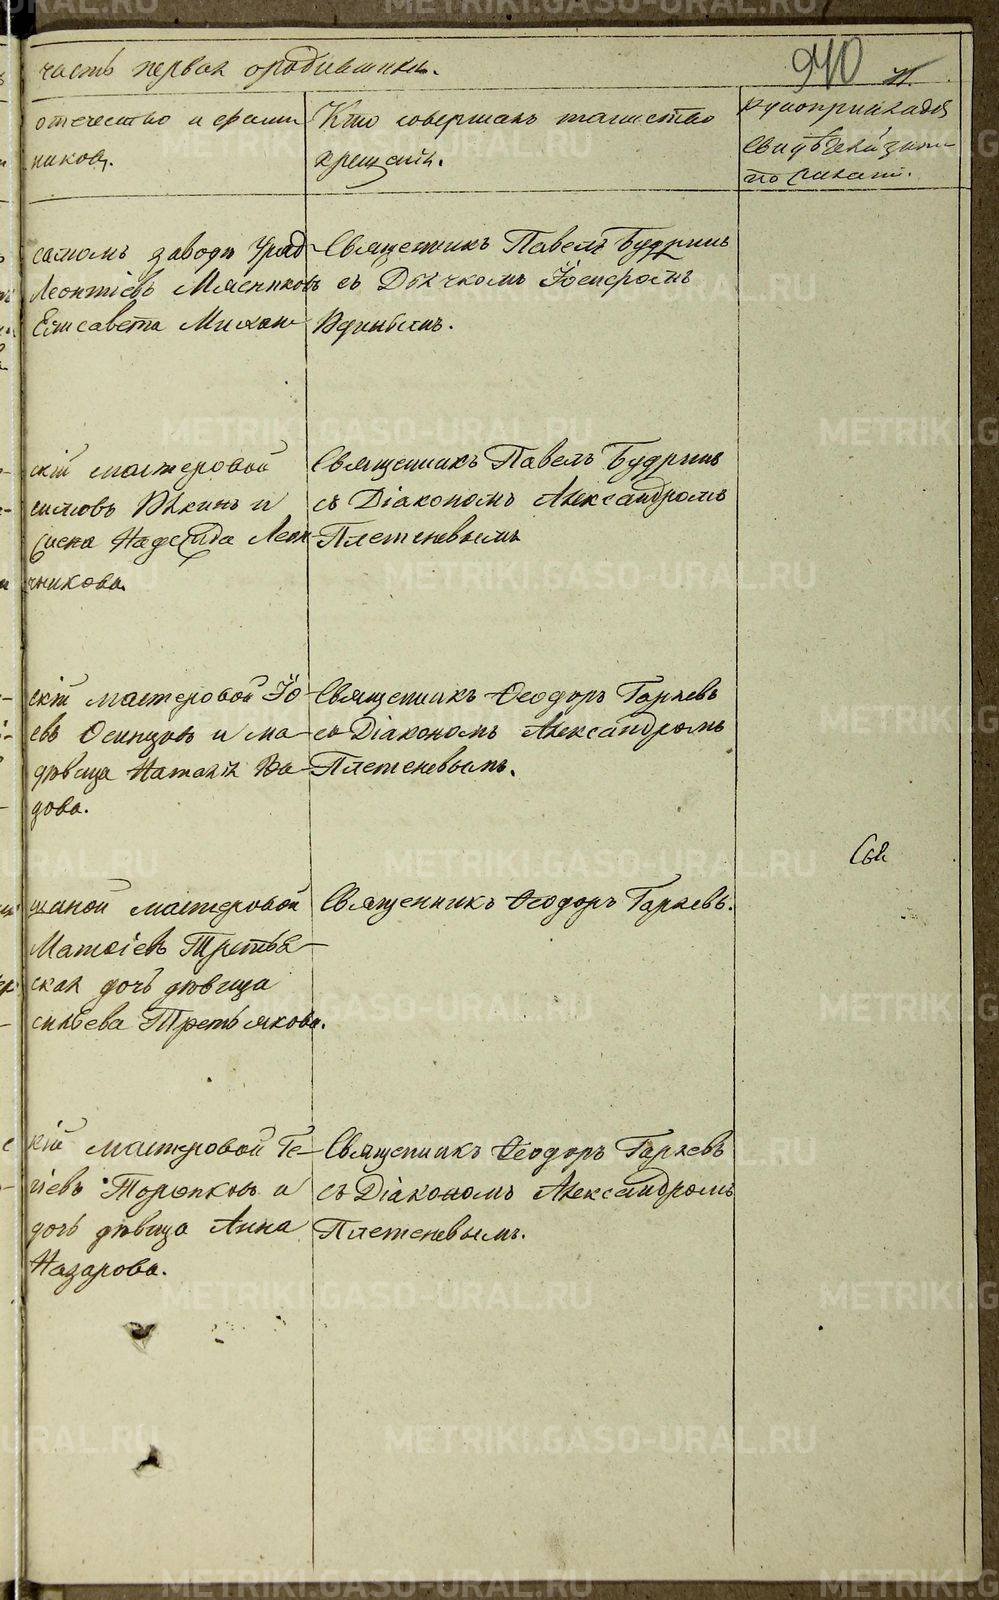 часть первая о родившихся.
940
отечество и фами-
ников.
Кто совершалъ таинство
крещенія.
по
самомъ заводѣ Уряд-
Леонтіевъ Мясниковъ
Елисавета Михаи-
Священникъ Павелъ Будринъ
съ Дьячкомъ
скій мастеровой
и
Надежда Леон-
чникова.
Священникъ Павелъ Будринъ
съ Діакономъ Александромъ
Плетеневымъ
скій мастеровой Іо-
евъ Осинцовъ и ма-
дѣвица Наталія
дова.
Священникъ Ѳеодоръ Гаряевъ
съ Діакономъ Александромъ
Плетеневымъ.
мастеровой
Матѳіевъ Третья-
ская дочь дѣвица
сильева Третьякова.
Священникъ Ѳеодоръ Гаряевъ.
кій мастеровой Ге-
гіевъ Торопковъ и
дочь дѣвица Анна
Назарова.
Священникъ Ѳеодоръ Гаряевъ
съ Діакономъ Александромъ
Плетеневымъ.
METRIKI.GASO-URAL.RU